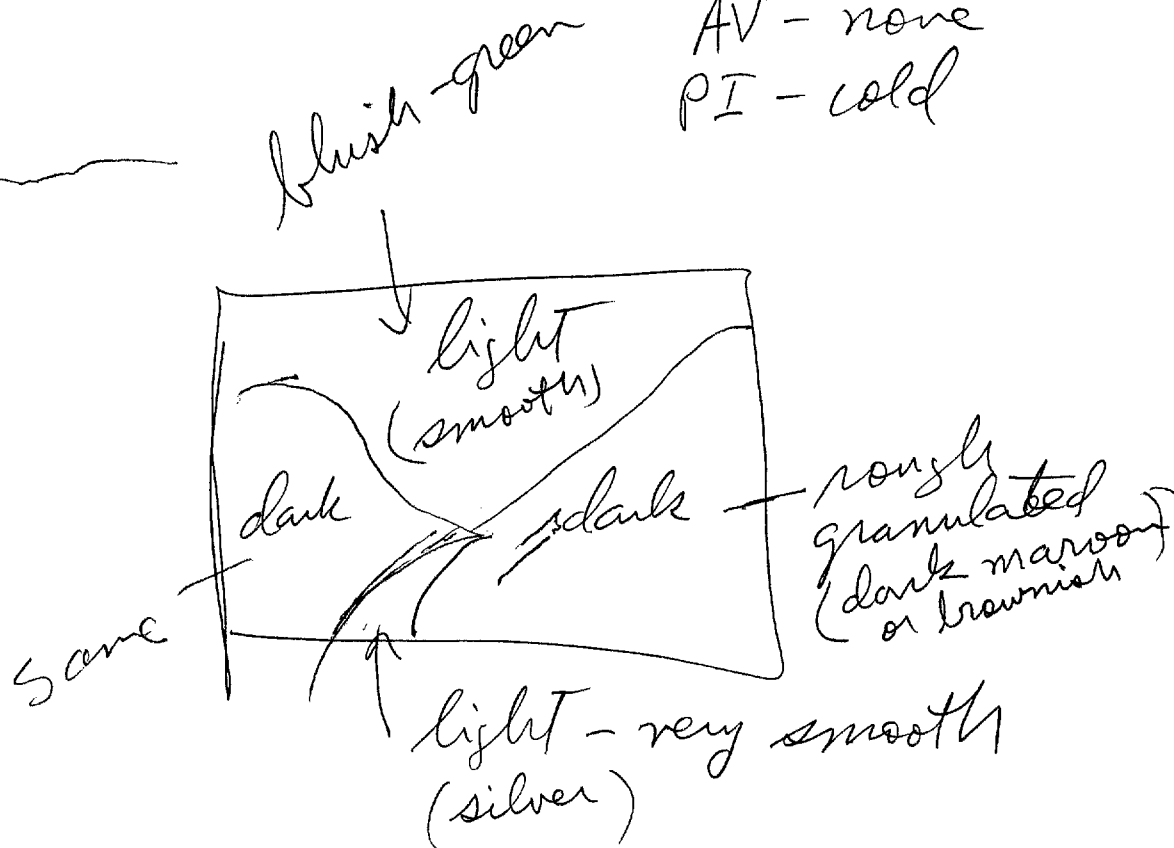 AV - none
PI - cold
bluish-green
light
(smooth)
dark
dark
rough
granulated
(dark maroon)
or brownish
same
light - very smooth
(silver)